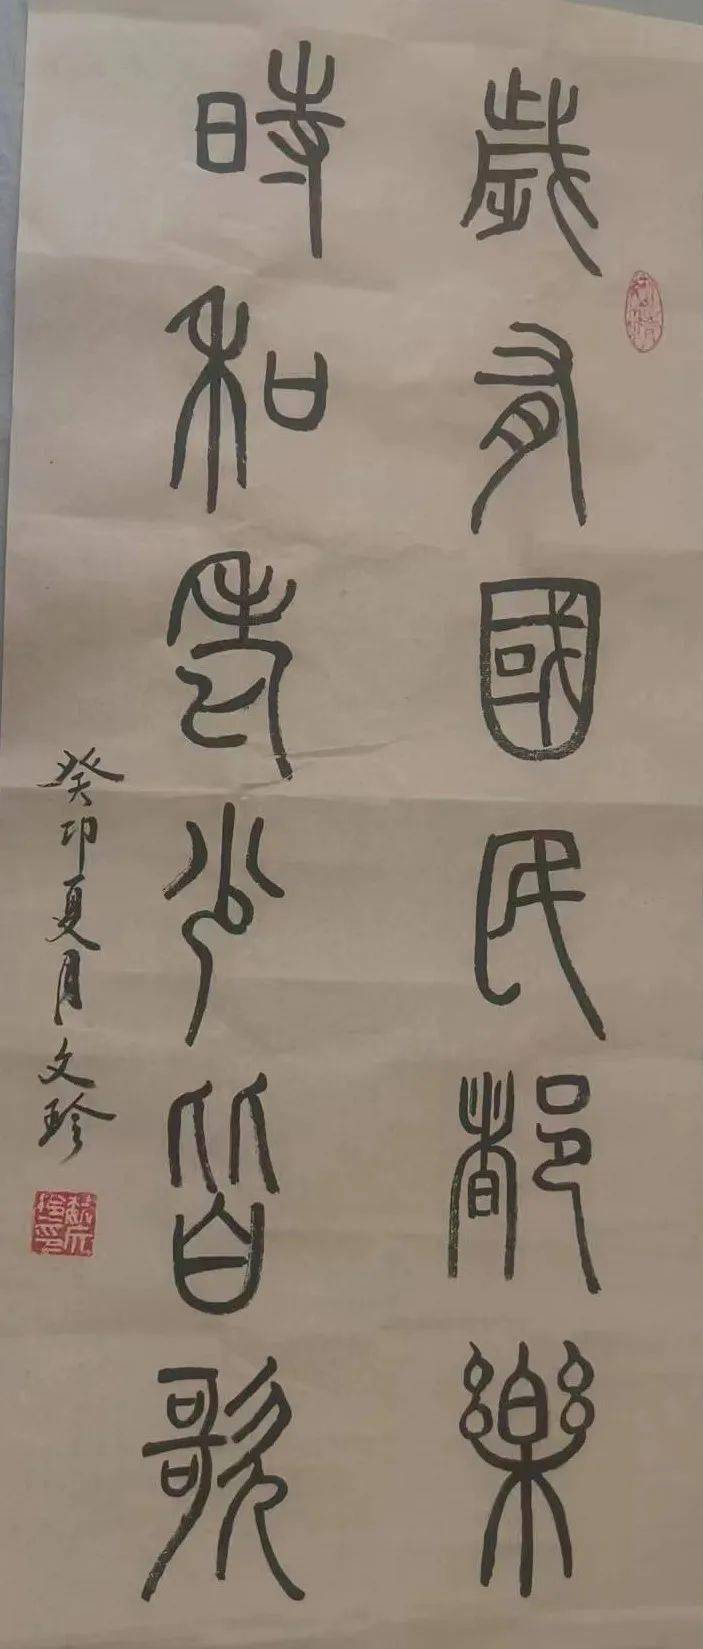 歲有國民都樂
時和老少皆歌
癸卯夏月文珍